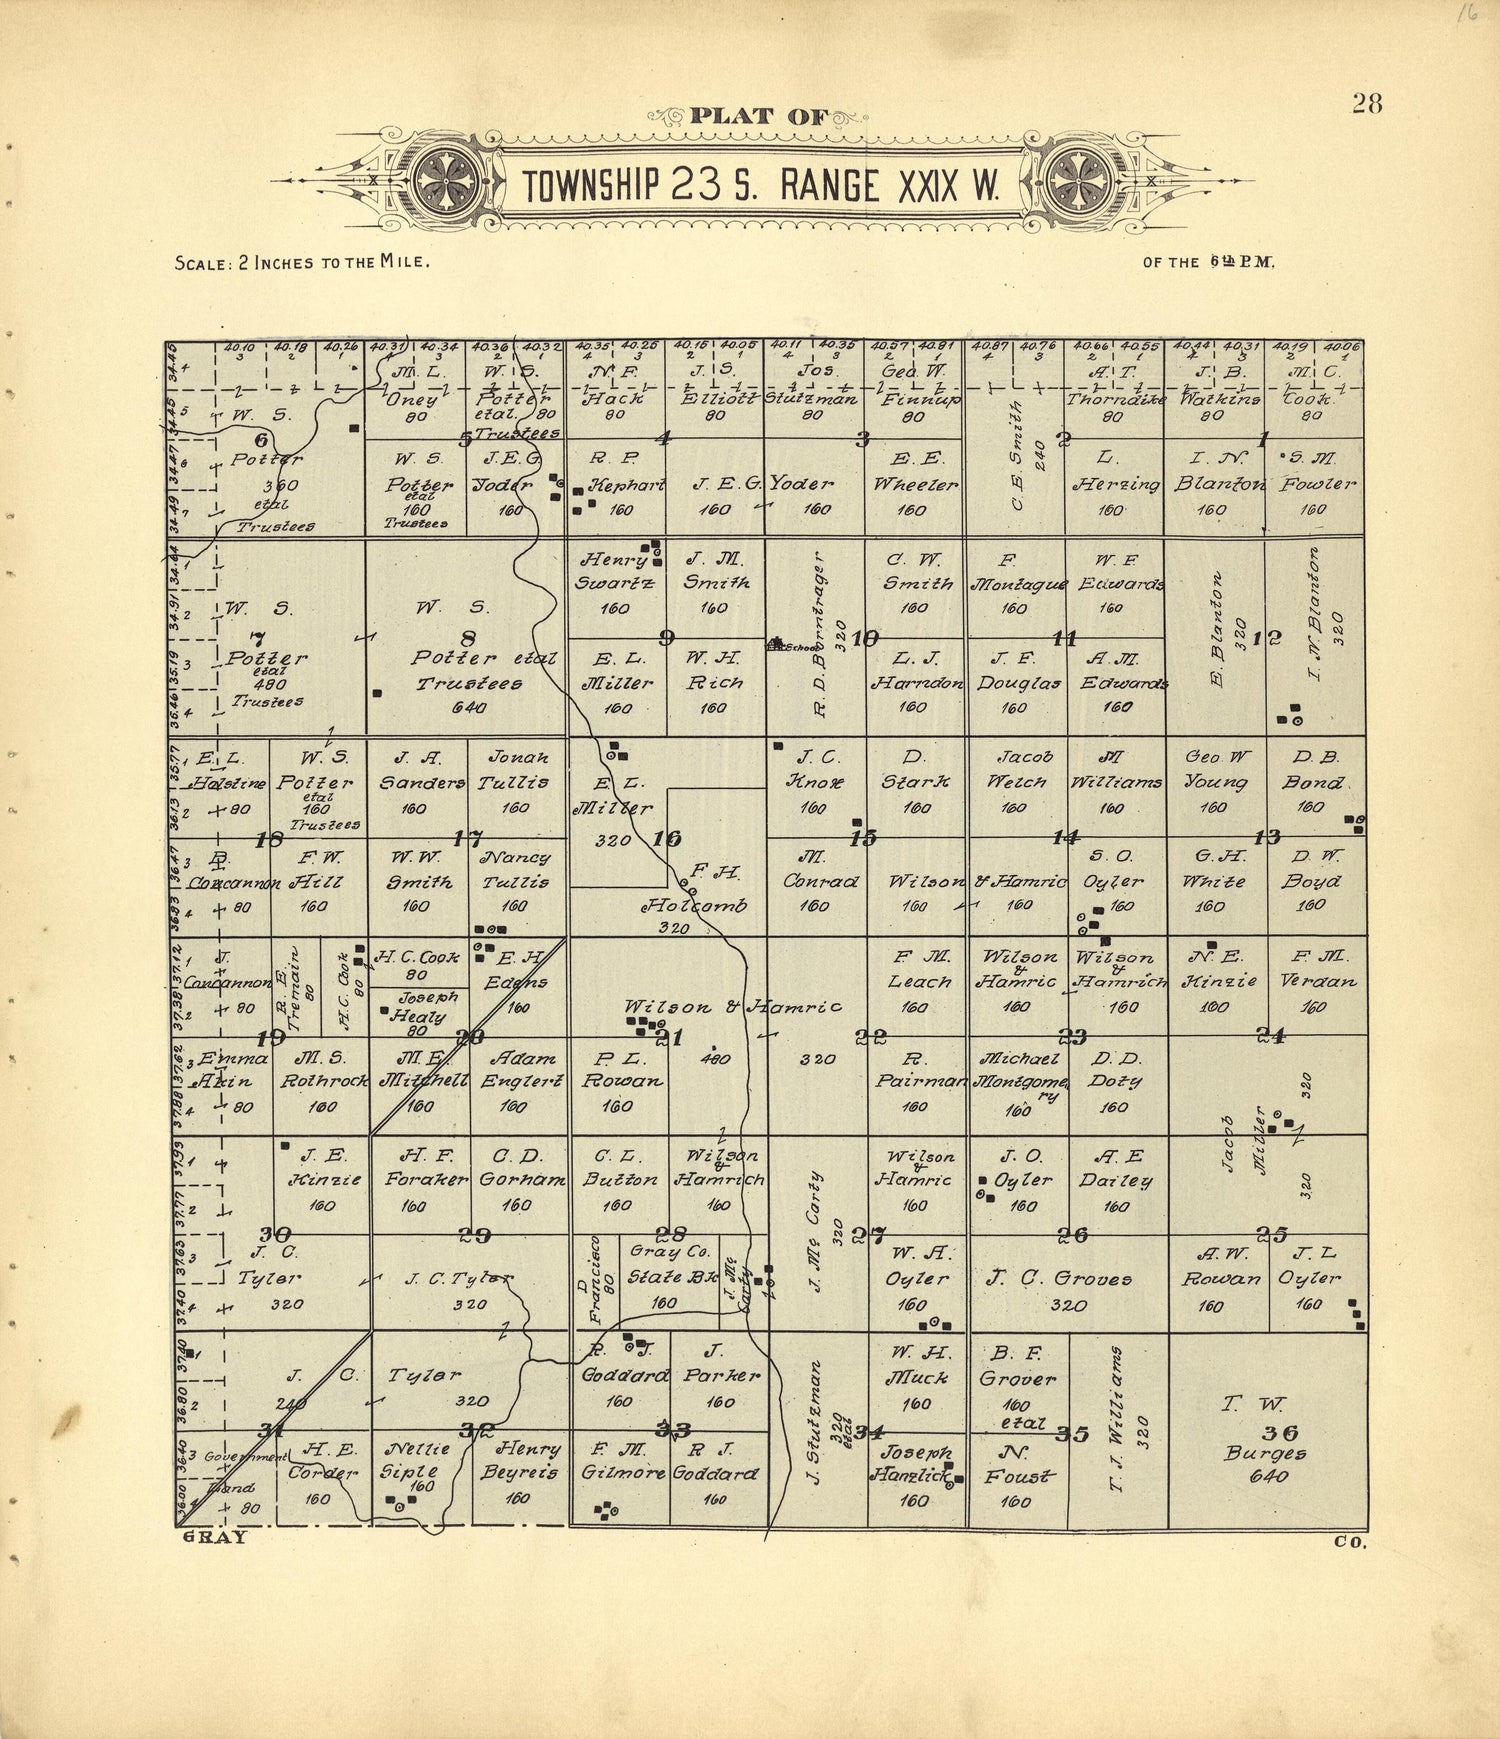 16
28
PLAT OF
TOWNSHIP 23 S. RANGE XXIX W.
SCALE: 2 INCHES TO THE MILE.
OF THE 6th P.M.
40.10 40.18 40.26 40.31 40.34 40.36 40.32 40.35 40.25 40.15 40.05 40.11 40.35 40.57 40.81 40.87 40.76 40.66 40.55 40.44 40.31 40.19 40.06
3 2 1 4 3 2 1 4 3 2 1 4 3 2 1 4 3 2 1 4 3 2 1
W. S.
6
Potter
360
etal
Trustees
M. L.
Oney
80
W. S.
Potter
etal. 80
Trustees
5
W. S.
Potter
etal
160
Trustees
J.E.G.
Yoder
160
N. F.
Hack
80
J. S.
Elliott
80
4
R. P.
Kephart
160
J. E. G. Yoder
160
160
Jos.
Stutzman
80
Geo. W.
Finnup
80
3
E. E.
Wheeler
160
C. E. Smith
240
2
A. T.
Thorndike
80
L.
Herzing
160
J. B.
Watkins
80
M. C.
Cook
80
1
I. N.
Blanton
160
S. M.
Fowler
160
W. S.
7
Potter
etal
480
Trustees
W. S.
8
Potter etal
Trustees
640
Henry
Swartz
160
J. M.
Smith
160
9
E. L.
Miller
160
W. H.
Rich
160
School
R. D. Borntrager
320
10
C. W.
Smith
160
L. J.
Harndon
160
F.
Montague
160
W. F.
Edwards
160
11
J. F.
Douglas
160
A. M.
Edwards
160
E. Blanton
320
12
I. N. Blanton
320
E. L.
Holstine
80
W. S.
Potter
etal
160
Trustees
18
Concannon
80
F. W.
Hill
160
J. A.
Sanders
160
Jonah
Tullis
160
17
W. W.
Smith
160
Nancy
Tullis
160
E. L.
Miller
320
16
F. H.
Holcomb
320
J. C.
Knox
160
D.
Stark
160
15
M.
Conrad
160
Wilson & Hamric
160
160
Jacob
Welch
160
M
Williams
160
14
S. O.
Oyler
160
Geo. W
Young
160
D. B.
Bond
160
13
G. H.
White
160
D. W.
Boyd
160
J.
Concannon
80
R. E.
Tremain
80
H. C. Cook
80
19
Emma
Akin
80
M. S.
Rothrock
160
H. C. Cook
80
Joseph
Healy
80
E. H.
Edens
160
20
M. E.
Mitchell
160
Adam
Englert
160
Wilson & Hamric
21
480
P. L.
Rowan
160
320
F. M.
Leach
160
22
R.
Pairman
160
Wilson
&
Hamric
160
Wilson
&
Hamrich
160
23
Michael
Montgomery
160
D. D.
Doty
160
N. E.
Kinzie
160
F. M.
Verdan
160
24
Jacob
Miller
320
320
J. E.
Kinzie
160
30
J. C.
Tyler
320
H. F.
Foraker
160
C. D.
Gorham
160
29
J. C. Tyler
320
C. L.
Button
160
Wilson
&
Hamrich
160
28
D
Francisco
80
Gray Co.
State Bk
160
J. Mc
Carty
J. Mc Carty
320
27
Wilson
&
Hamric
160
W. A.
Oyler
160
J. O.
Oyler
160
A. E
Dailey
160
26
J. C. Groves
320
25
A. W.
Rowan
160
J. L
Oyler
160
J. C. Tyler
240
320
31
Government
Land
80
H. E.
Corder
160
32
Nellie
Siple
160
Henry
Beyreis
160
R. J.
Goddard
160
J.
Parker
160
33
F. M.
Gilmore
R. J.
Goddard
160
J. Stutzman
320
etal
34
W. H.
Muck
160
Joseph
Hanzlick
160
B. F.
Grover
160
etal
35
N.
Foust
160
T. J. Williams
320
T. W.
36
Burges
640
GRAY
CO.